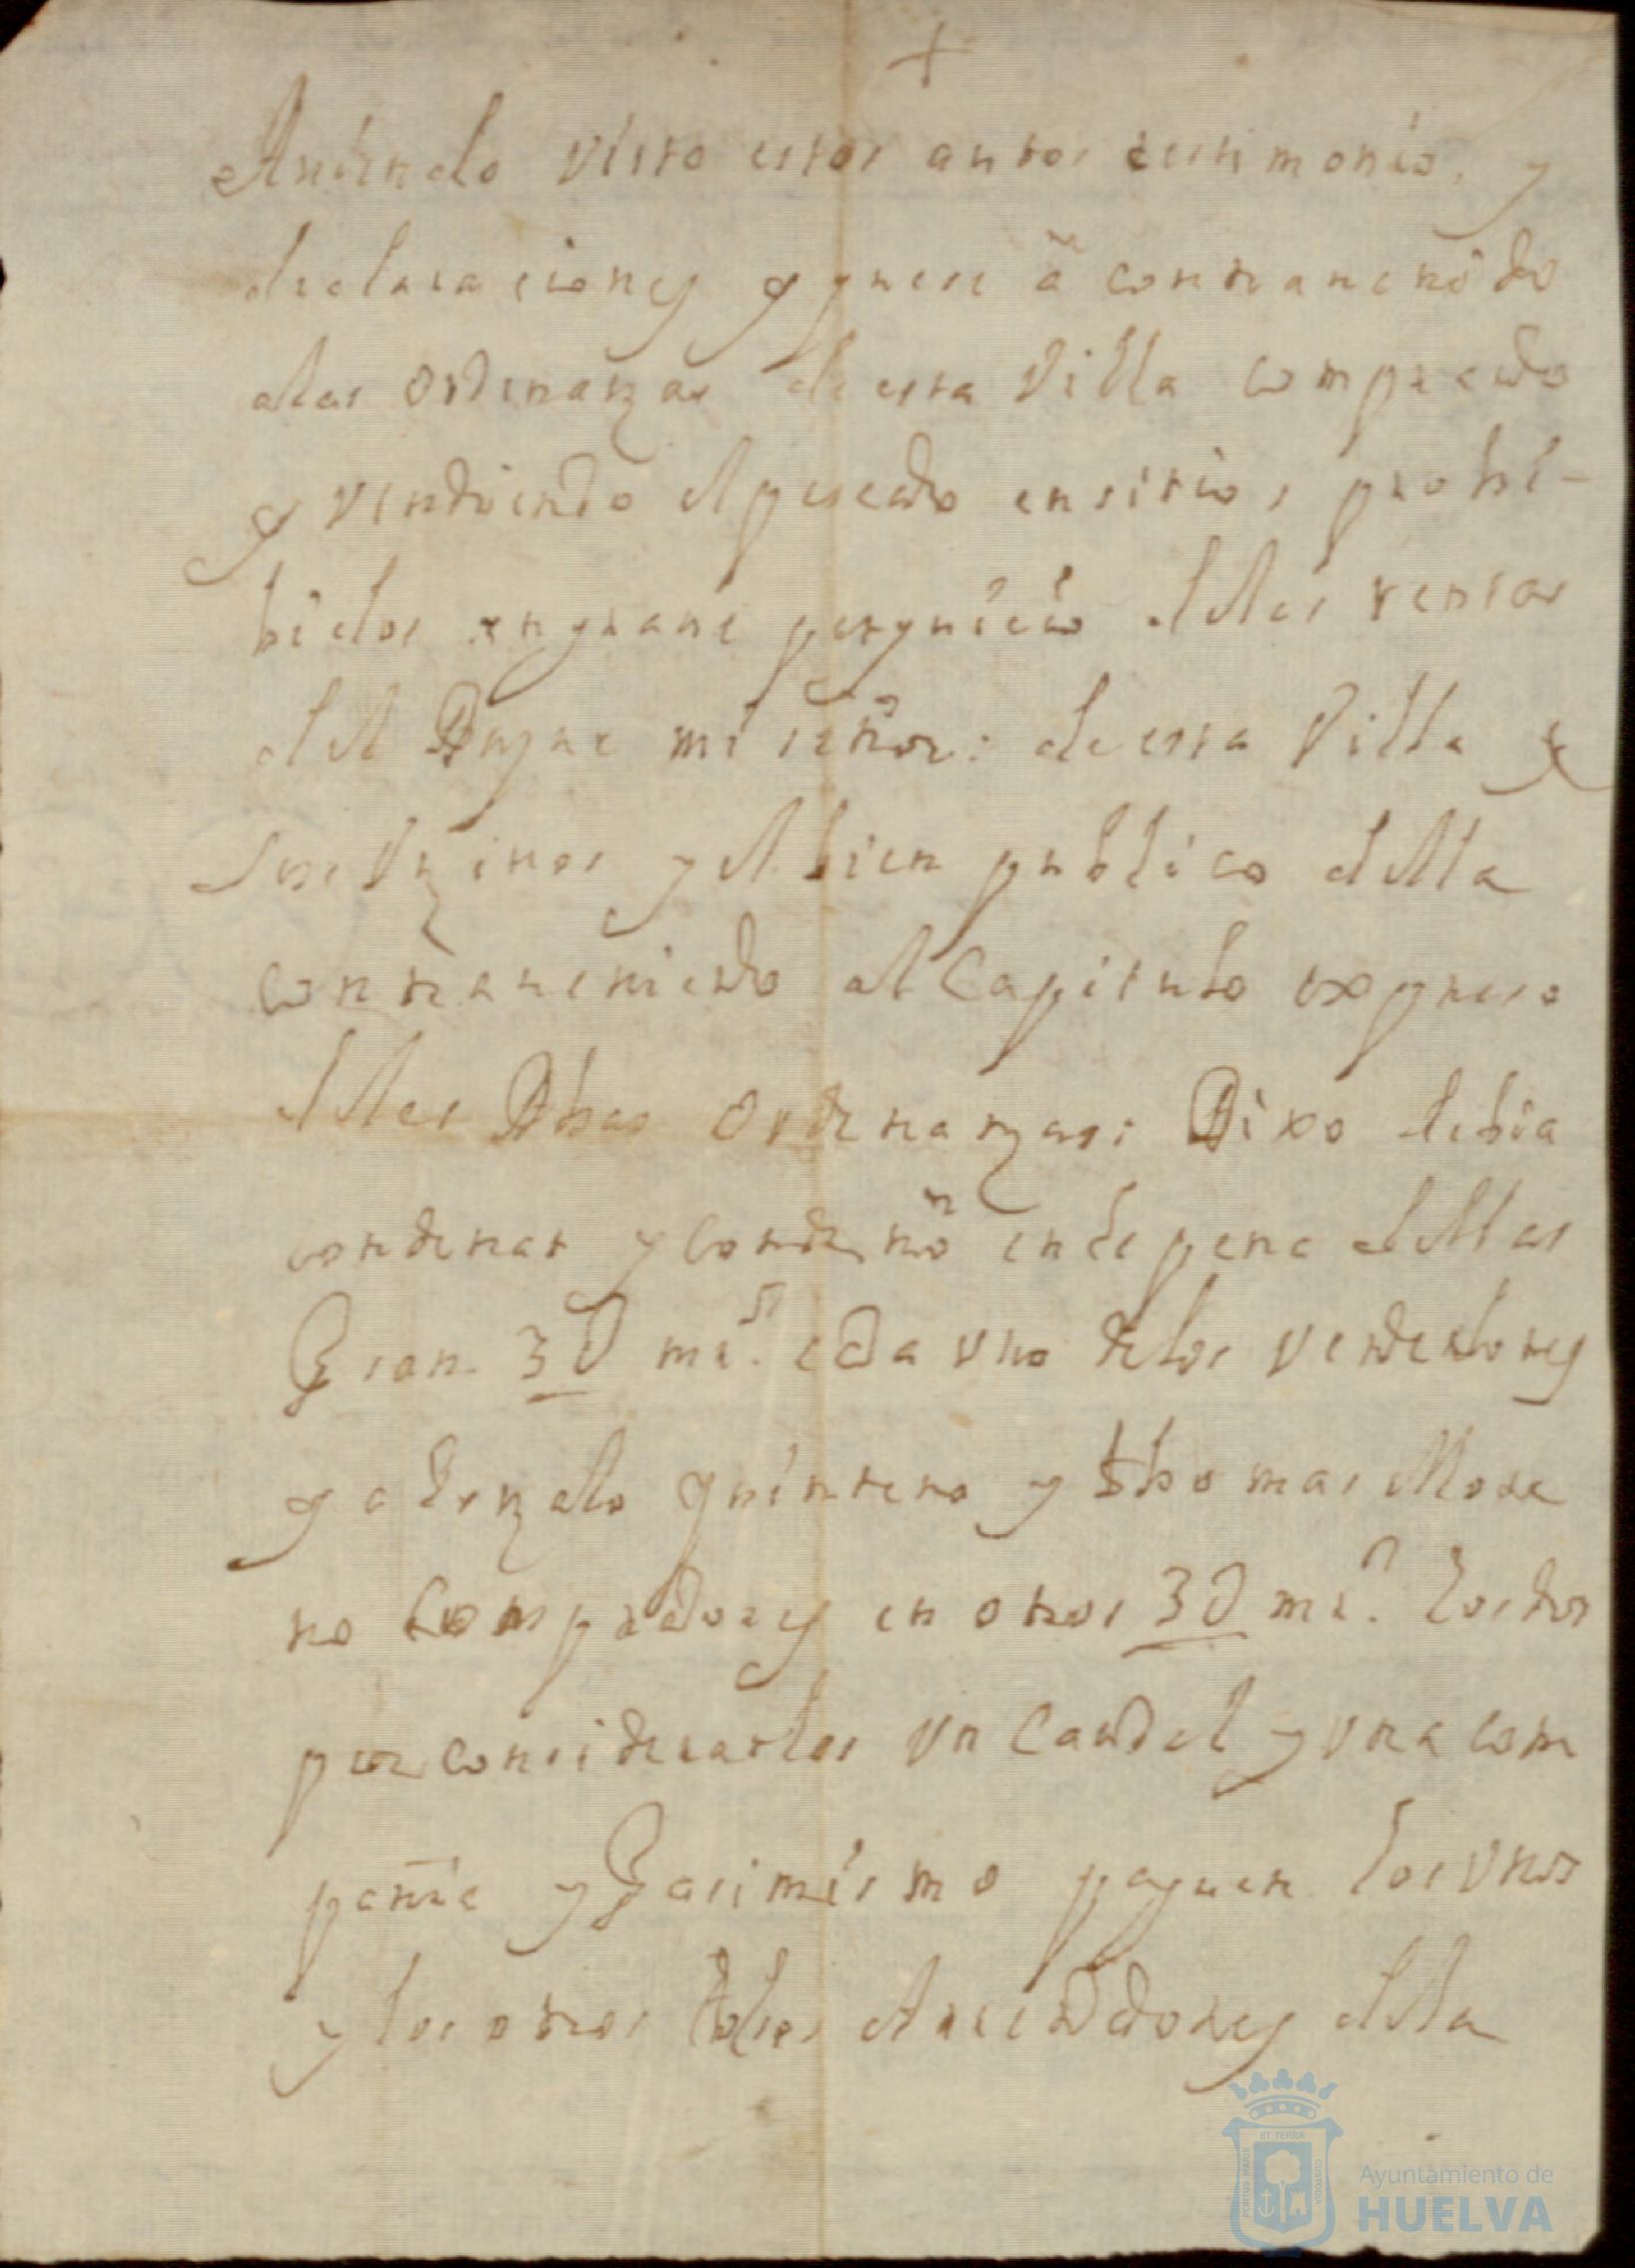 +
Auiendo visto estos autos testimonio, y
declaraciones y que se à contrauenido
a las ordenanzas de esta Villa comprando
y vendiendo el pescado en sitios prohi-
bidos en graue perjuicio de las rentas
del Duque mi señor: de esta Villa y
sus Vezinos y el bien publico della
contrauiniendo al Capitulo expreso
de las Dhas Ordenanzas: Dixo debia
condenar y condenò en la pena dellas
Q son 3U mrs. cada uno de los vendedores
y a Gonzalo quintero y thomas More
no compradores en otros 3U mrs. los dos
por considerarlos un Caudal y una com
pañia y Q asimismo paguen los unos
y los otros a los Arrendadores de la
Ayuntamiento de
HUELVA